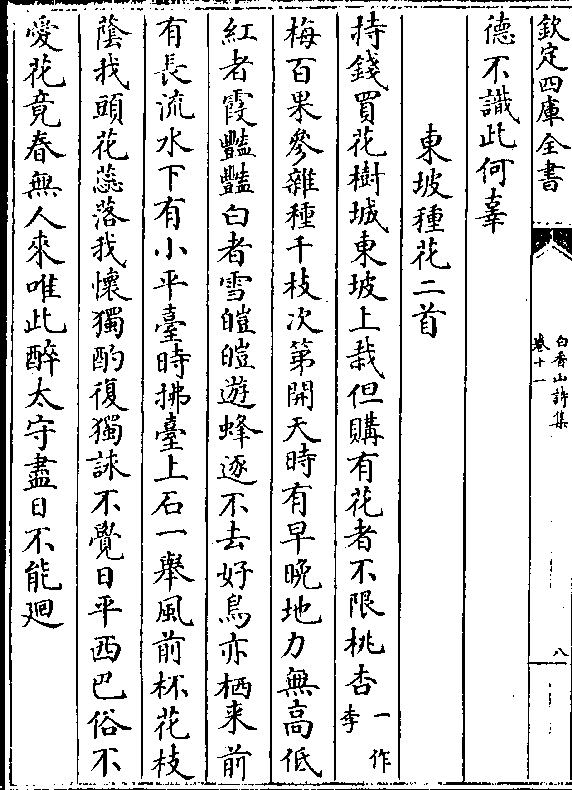 欽定四庫全書
白香山詩集
卷十一
八
德不識此何辜
東坡種花二首
持錢買花樹城東坡上栽但購有花者不限桃杏一作李
梅百果參雜種千枝次第開天時有早晩地力無高低
紅者霞豔豔白者雪皚皚遊蜂逐不去好鳥亦栖来前
有長流水下有小平臺時拂臺上石一舉風前杯花枝
蔭我頭花蕊落我懷獨酌復獨詠不覺日平西巴俗不
愛花竟春無人來唯此醉太守盡日不能廻